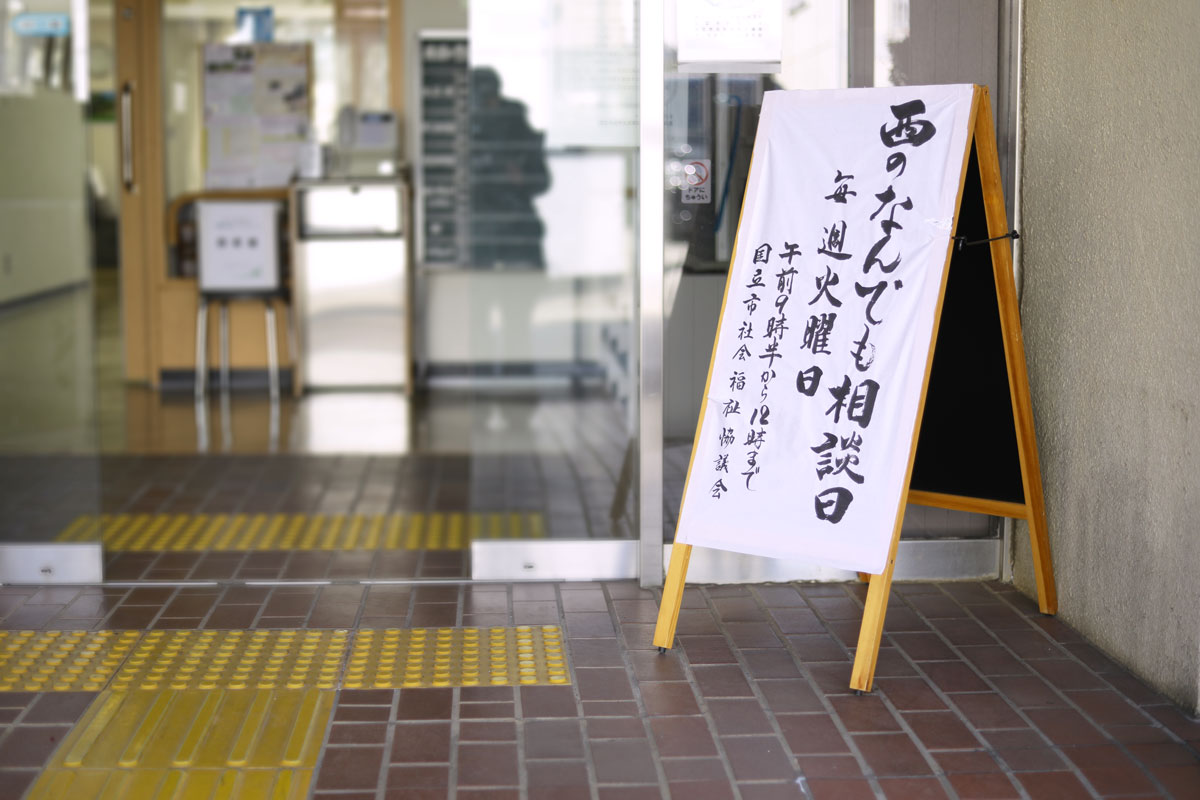 西のなんでも相談日
毎週火曜日
午前9時半から12時まで
国立市社会福祉協議会
ドアに
ちゅうい